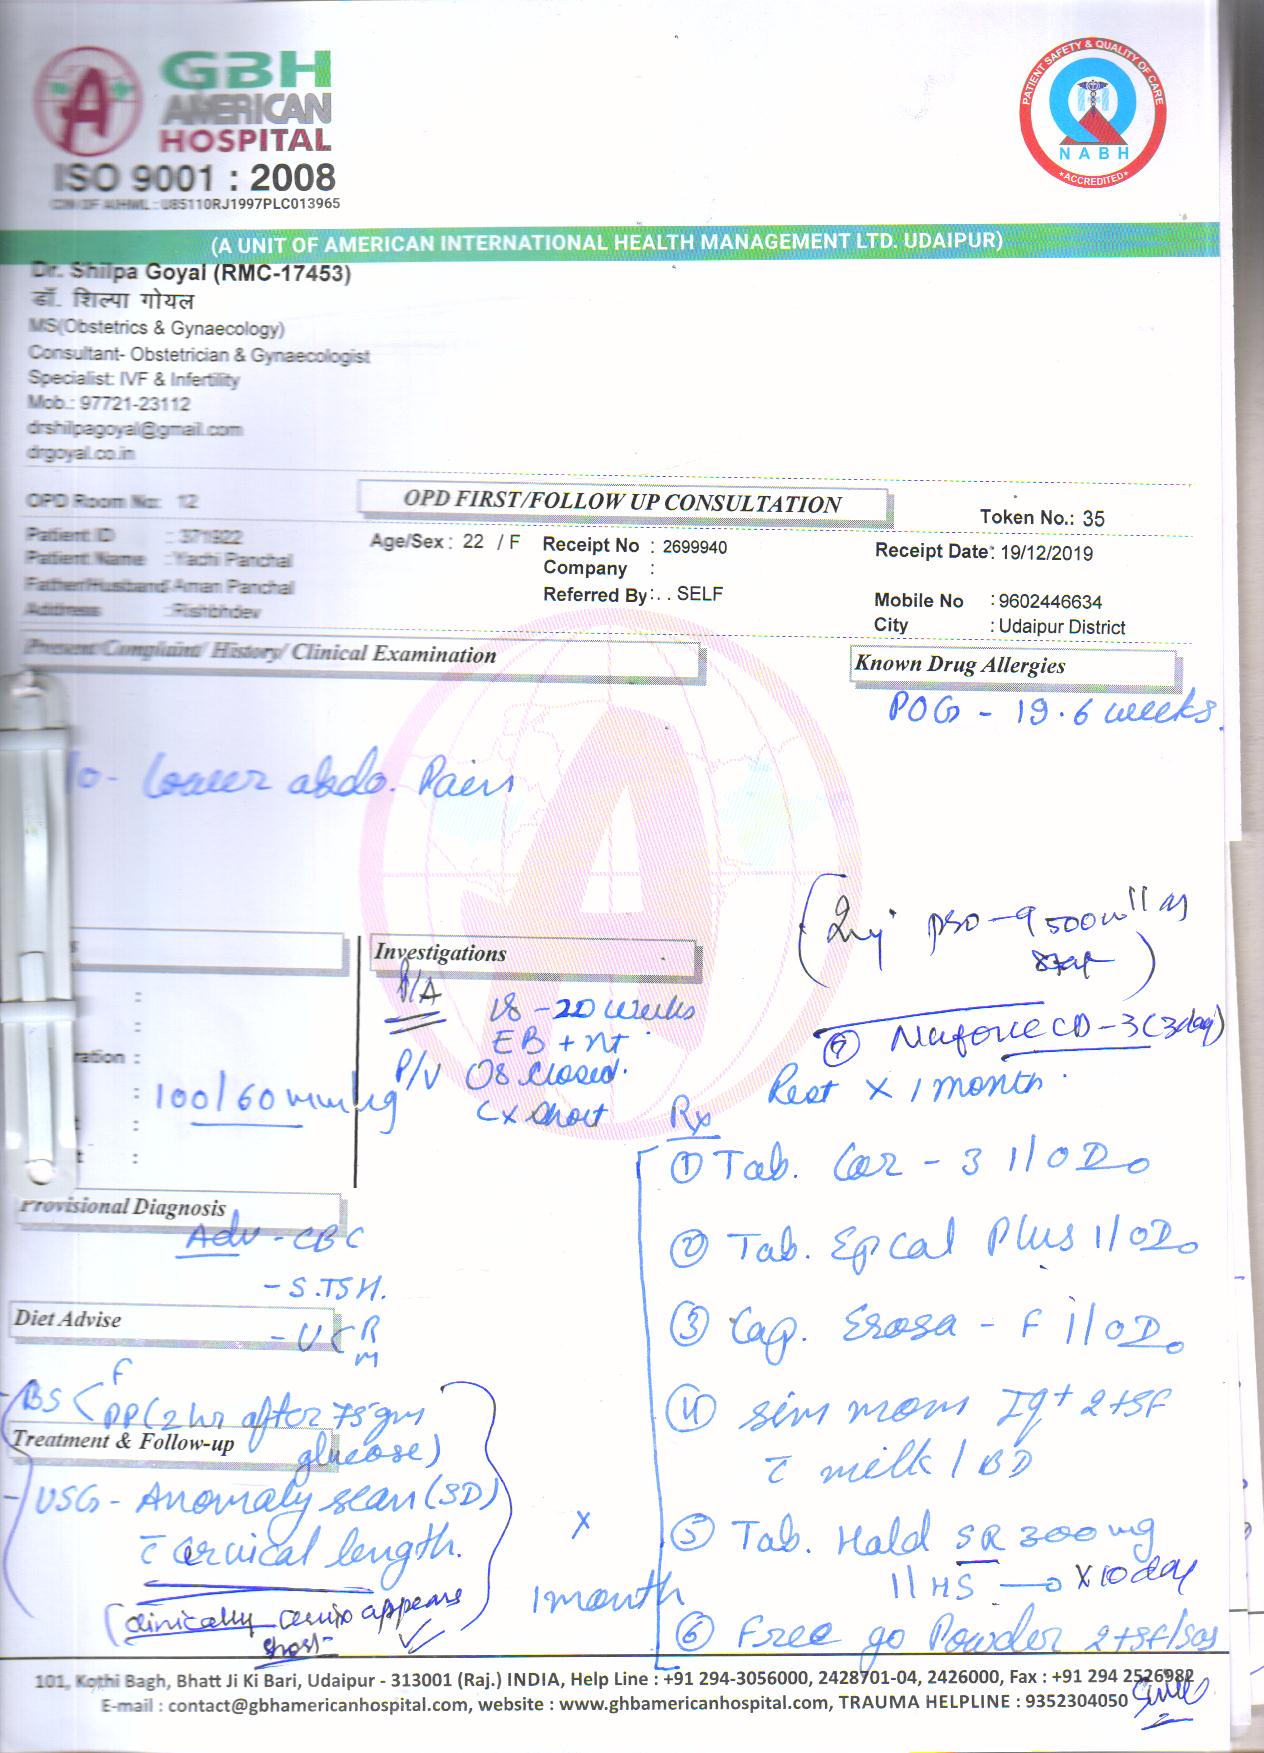 GBH
AMERICAN
HOSPITAL
ISO 9001 : 2008
CIN OF AIIHML : U85110RJ1997PLC013965
PATIENT SAFETY & QUALITY OF CARE
NABH
ACCREDITED
(A UNIT OF AMERICAN INTERNATIONAL HEALTH MANAGEMENT LTD. UDAIPUR)
Dr. Shilpa Goyal (RMC-17453)
डॉ. शिल्पा गोयल
MS(Obstetrics & Gynaecology)
Consultant- Obstetrician & Gynaecologist
Specialist: IVF & Infertility
Mob.: 97721-23112
drshilpagoyal@gmail.com
drgoyal.co.in
OPD Room No: 12
OPD FIRST/FOLLOW UP CONSULTATION
Token No.: 35
Patient ID : 371922
Age/Sex : 22 / F
Receipt No : 2699940
Receipt Date: 19/12/2019
Patient Name : Yachi Panchal
Company :
Father/Husband Aman Panchal
Referred By:. . SELF
Mobile No : 9602446634
Address : Rishbhdev
City : Udaipur District
Present Complaint/ History/ Clinical Examination
Known Drug Allergies
POG - 19.6 weeks.
/o - Lower abdo. Pain
Investigations
P/A 18-20 weeks
EB + nt
P/V OS closed.
Cx short
100/60 mmHg
Inj
500
stat
7 CD-3 (3 day)
Rest x 1 month.
Rx
1 Tab. Cor-3 1/OD
2 Tab. Epcal Plus 1/OD
3 Cap. Erosa-F 1/OD
4 2tsf
c milk / BD
5 Tab. Hald SR 300 mg
1/HS x 10 day
6 Free go Powder 2tsf/sos
Provisional Diagnosis
Adv - CBC
- S.TSH.
- U R M
Diet Advise
- BS F
PP (2 hr after 75 gm
glucose)
Treatment & Follow-up
- USG - Anomaly scan (SD)
c cervical length.
(clinically cervix appears
short
x 1 month
101, Kothi Bagh, Bhatt Ji Ki Bari, Udaipur - 313001 (Raj.) INDIA, Help Line : +91 294-3056000, 2428701-04, 2426000, Fax : +91 294 2526982
E-mail : contact@gbhamericanhospital.com, website : www.ghbamericanhospital.com, TRAUMA HELPLINE : 9352304050